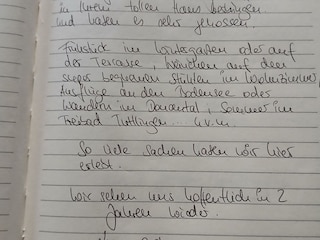 in Ihrem tollen Haus verbringen
und haben es sehr genossen.
Frühstück im Wintergarten oder auf
der Terrasse, Weinchen auf den
super bequemen Stühlen im Wohnzimmer,
Ausflüge an den Bodensee oder
Wandern im Donautal, Sommer im
Freibad Tuttlingen... u.v.m.
So viele Sachen haben wir hier
erlebt.
Wir sehen uns hoffentlich in 2
Jahren wieder.